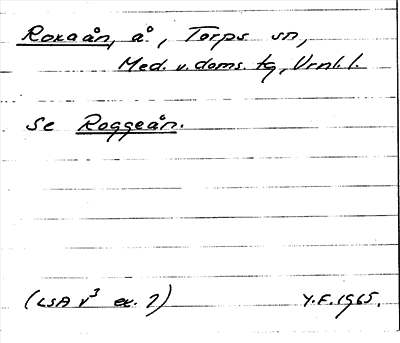 Roxaån, å, Torps sn,
Med. v. doms. tg, Vrnl. l.
Se Roggeån.
(LSA v³ ex. ?) Y.F. 1965.